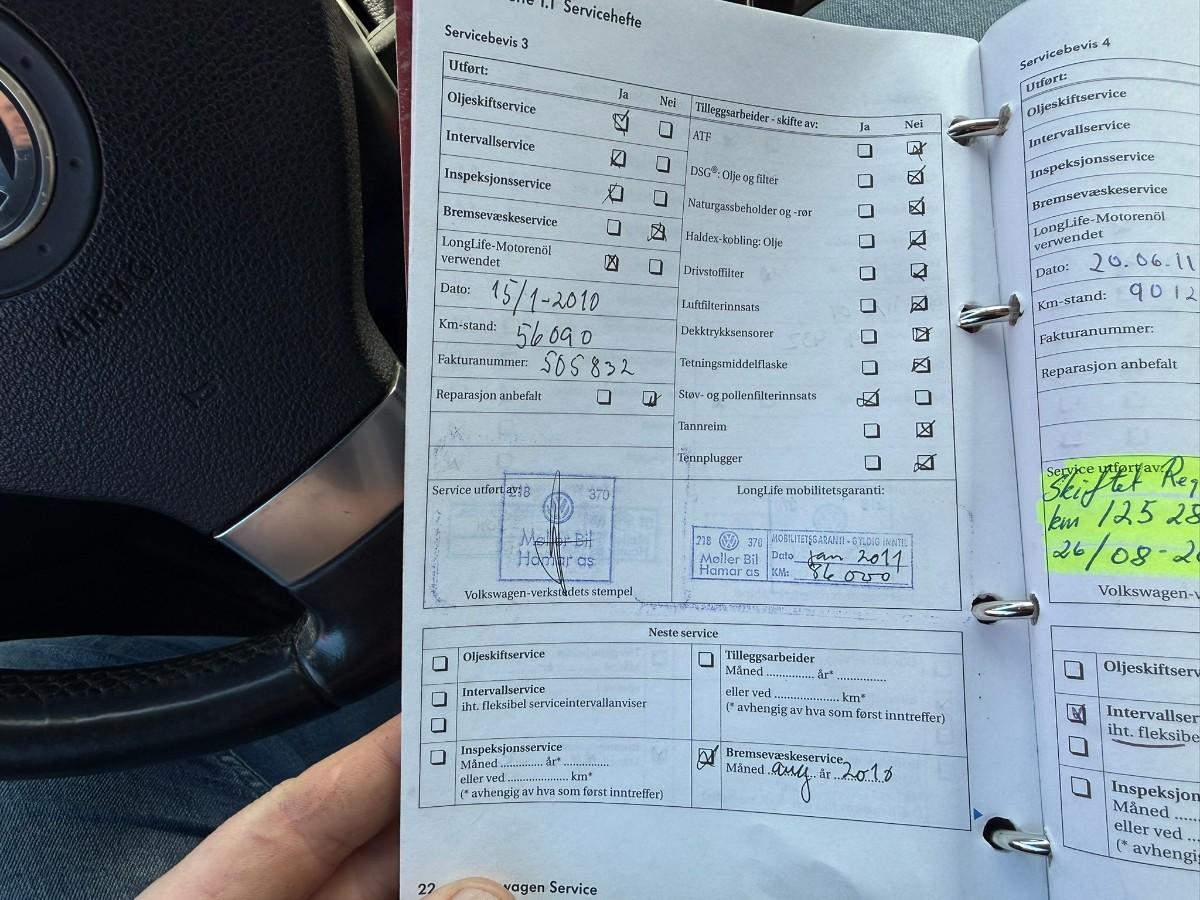 1.1 Servicehefte
Servicebevis 3
Utført:
Ja Nei
Oljeskiftservice
Intervallservice
Inspeksjonsservice
Bremsevæskeservice
LongLife-Motorenöl
verwendet
Dato: 15/1-2010
Km-stand: 56090
Fakturanummer: 505832
Reparasjon anbefalt
Tilleggsarbeider - skifte av: Ja Nei
ATF
DSG®: Olje og filter
Naturgassbeholder og -rør
Haldex-kobling: Olje
Drivstoffilter
Luftfilterinnsats
Dekktrykksensorer
Tetningsmiddelflaske
Støv- og pollenfilterinnsats
Tannreim
Tennplugger
Service utført av:
218 370
Møller Bil
Hamar as
Volkswagen-verkstedets stempel
LongLife mobilitetsgaranti:
218 370 MOBILITETSGARANTI - GYLDIG INNTIL
Møller Bil Dato Jan 2011
Hamar as KM: 86000
Neste service
Oljeskiftservice
Intervallservice
iht. fleksibel serviceintervallanviser
Inspeksjonsservice
Måned ............. år* ...............
eller ved .................. km*
(* avhengig av hva som først inntreffer)
Tilleggsarbeider
Måned .............. år* ..............
eller ved .................. km*
(* avhengig av hva som først inntreffer)
Bremsevæskeservice
Måned aug år 2010
22
Service
Servicebevis 4
Utført:
Oljeskiftservice
Intervallservice
Inspeksjonsservice
Bremsevæskeservice
LongLife-Motorenöl
verwendet
Dato: 20.06.11
Km-stand: 9012
Fakturanummer:
Reparasjon anbefalt
Service utført av:
Skiftet Reg
km 125 28
26/08-20
Volkswagen-v
Oljeskiftserv
Intervallser
iht. fleksibe
Inspeksjon
Måned .....
eller ved ...
(* avhengig
AIRBAG